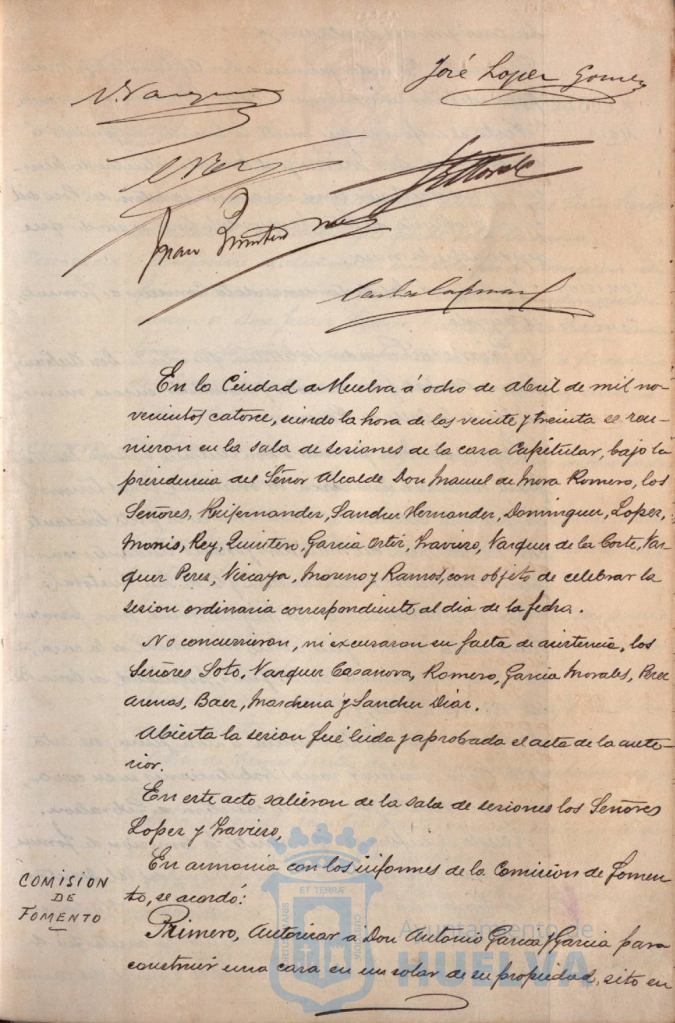 José Lopez Gomez
Juan Quintero
En la Ciudad de Huelva á ocho de abril de mil no-
vecientos catorce, siendo la hora de las veinte y treinta se reu-
nieron en la sala de sesiones de la casa Capitular, bajo la
presidencia del Señor Alcalde Don Manuel de Mora Romero, los
Señores, Reifernandez, Sanchez Hernandez, Dominguez, Lopez,
Monis, Rey, Quintero, Garcia Ortiz, Travieso, Vazquez de la Corte, Vaz-
quez Perez, Vizcaya, Moreno y Ramos, con objeto de celebrar la
sesion ordinaria correspondiente al dia de la fecha.
No concurrieron, ni excusaron su falta de asistencia, los
Señores Soto, Vazquez Casanova, Romero, Garcia Morales, Perez
Arenas, Baez, Marchena y Sanchez Diaz.
Abierta la sesion fué leida y aprobada el acta de la ante-
rior.
En este acto salieron de la sala de sesiones los Señores
Lopez y Travieso,
En armonia con los informes de la Comision de Fomen-
to, se acordó:
COMISION
DE
FOMENTO
Primero, Autorizar a Don Antonio Garcia y Garcia para
construir una casa en un solar de su propiedad, sito en
Ayuntamiento de
HUELVA